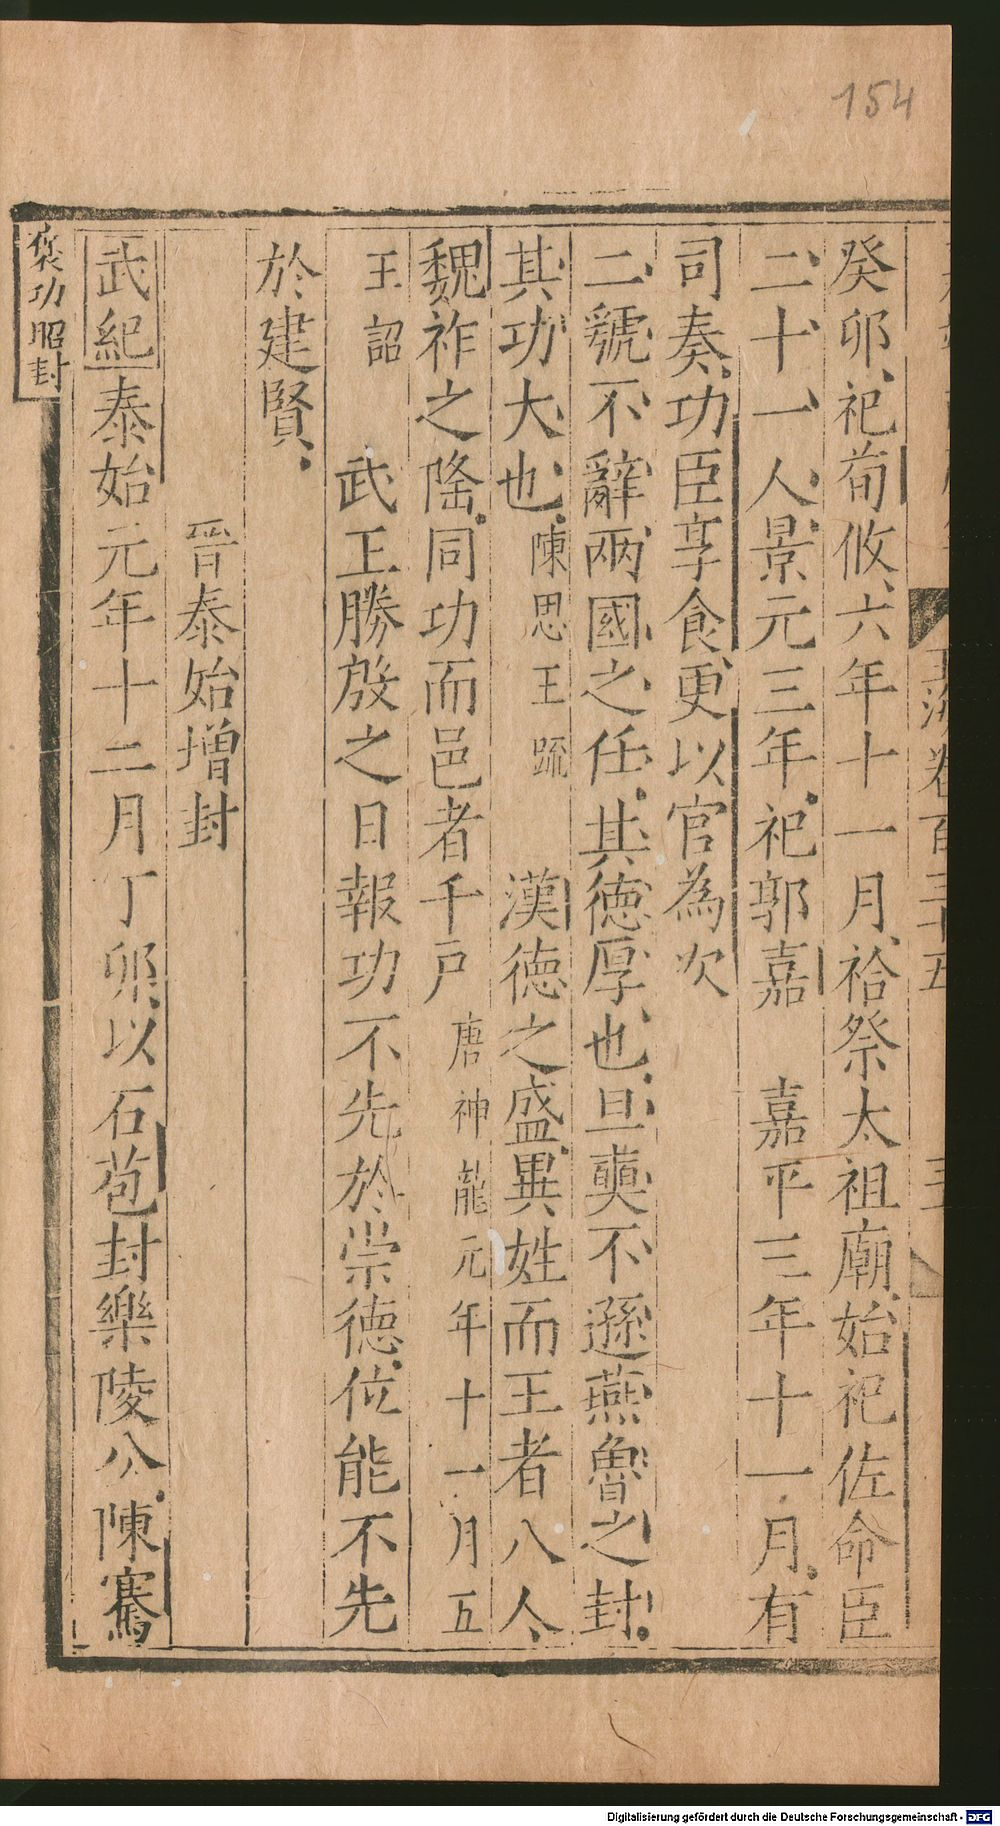 154
玉海卷百三十五
癸卯祀荀攸六年十一月祫祭太祖廟始祀佐命臣
二十一人景元三年祀郭嘉 嘉平三年十一月有
司奏功臣享食更以官為次
二號不辭兩國之任其德厚也旦奭不遜燕魯之封
其功大也陳思王䟽 漢德之盛異姓而王者八人
魏祚之隆同功而邑者千戶 唐神龍元年十一月五
王詔 武王勝殷之日報功不先於崇德位能不先
於建賢
晉泰始增封
武紀泰始元年十二月丁卯以石苞封樂陵公陳騫
褒功昭封
Digitalisierung gefördert durch die Deutsche Forschungsgemeinschaft - DFG